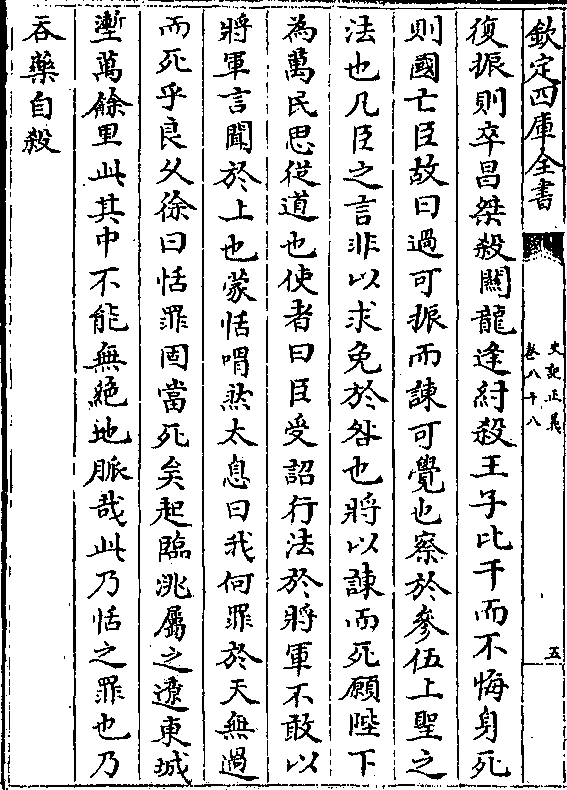 欽定四庫全書
史記正義
卷八十八
五
復振則卒昌桀殺關龍逢紂殺王子比干而不悔身死
則國亡臣故曰過可振而諫可覺也察於參伍上聖之
法也凡臣之言非以求免於咎也將以諫而死願陛下
為萬民思從道也使者曰臣受詔行法於將軍不敢以
將軍言聞於上也蒙恬喟然太息曰我何罪於天無過
而死乎良久徐曰恬罪固當死矣起臨洮屬之遼東城
壍萬餘里此其中不能無絶地脈哉此乃恬之罪也乃
吞藥自殺